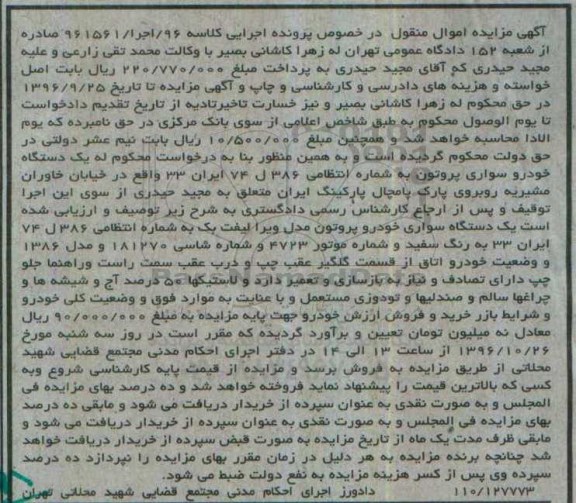 آگهی مزایده اموال منقول در خصوص پرونده اجرایی کلاسه ۹۶/اجرا/۹۶۱۵۶۱ صادره
از شعبه ۱۵۲ دادگاه عمومی تهران له زهرا کاشانی بصیر با وکالت محمد تقی زارعی و علیه
مجید حیدری که آقای مجید حیدری به پرداخت مبلغ ۲۲۰/۷۷۰/۰۰۰ ریال بابت اصل
خواسته و هزینه های دادرسی و کارشناسی و چاپ و آگهی مزایده تا تاریخ ۱۳۹۶/۹/۲۵
در حق محکوم له زهرا کاشانی بصیر و نیز خسارت تاخیرتادیه از تاریخ تقدیم دادخواست
تا یوم الوصول محکوم به طبق شاخص اعلامی از سوی بانک مرکزی در حق نامبرده که یوم
الادا محاسبه خواهد شد و همچنین مبلغ ۱۰/۵۰۰/۰۰۰ ریال بابت نیم عشر دولتی در
حق دولت محکوم گردیده است و به همین منظور بنا به درخواست محکوم له یک دستگاه
خودرو سواری پروتون به شماره انتظامی ۳۸۶ ل ۷۴ ایران ۳۳ واقع در خیابان خاوران
مشیریه روبروی پارک بامچال پارکینگ ایران متعلق به مجید حیدری از سوی این اجرا
توقیف و پس از ارجاع کارشناس رسمی دادگستری به شرح زیر توصیف و ارزیابی شده
است یک دستگاه سواری خودرو پروتون مدل ویرا لیفت بک به شماره انتظامی ۳۸۶ ل ۷۴
ایران ۳۳ به رنگ سفید و شماره موتور ۴۷۲۳ و شماره شاسی ۱۸۱۲۷۰ و مدل ۱۳۸۶
و وضعیت خودرو اتاق از قسمت گلگیر عقب چپ و درب عقب سمت راست وراهنما جلو
چپ دارای تصادف و نیاز به بازسازی و تعمیر دارد و لاستیکها ۵۰ درصد آج و شیشه ها و
چراغها سالم و صندلیها و تودوزی مستعمل و با عنایت به موارد فوق و وضعیت کلی خودرو
و شرایط بازر خرید و فروش ارزش خودرو جهت پایه مزایده به مبلغ ۹۰/۰۰۰/۰۰۰ ریال
معادل نه میلیون تومان تعیین و برآورد گردیده که مقرر است در روز سه شنبه مورخ
۱۳۹۶/۱۰/۲۶ از ساعت ۱۳ الی ۱۴ در دفتر اجرای احکام مدنی مجتمع قضایی شهید
محلاتی از طریق مزایده به فروش برسد و مزایده از قیمت پایه کارشناسی شروع وبه
کسی که بالاترین قیمت را پیشنهاد نماید فروخته خواهد شد و ده درصد بهای مزایده فی
المجلس و به صورت نقدی به عنوان سپرده از خریدار دریافت می شود و مابقی ده درصد
بهای مزایده فی المجلس و به صورت نقدی به عنوان سپرده از خریدار دریافت می شود و
مابقی ظرف مدت یک ماه از تاریخ مزایده به صورت قبض سپرده از خریدار دریافت خواهد
شد چنانچه برنده مزایده به هر دلیل در زمان مقرر بهای مزایده را نپردازد ده درصد
سپرده وی پس از کسر هزینه مزایده به نفع دولت ضبط می شود.
۱۱۰/۱۲۷۷۷۳ دادورز اجرای احکام مدنی مجتمع قضایی شهید محلاتی تهران